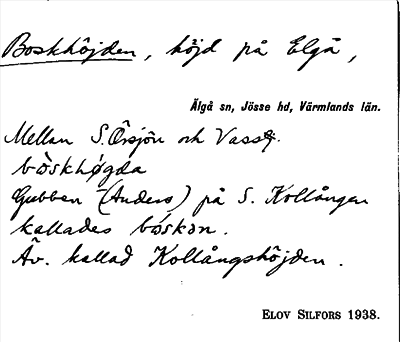 Boskhöjden, höjd på Elgå,
Älgå sn, Jösse hd, Värmlands län.
Mellan S. Örsjön och Vassj.
bòskhø̀gda
Gubben (Anders) på S. Kollången
kallades bóskan.
Äv. kallad Kollångshöjden.
ELOV SILFORS 1938.